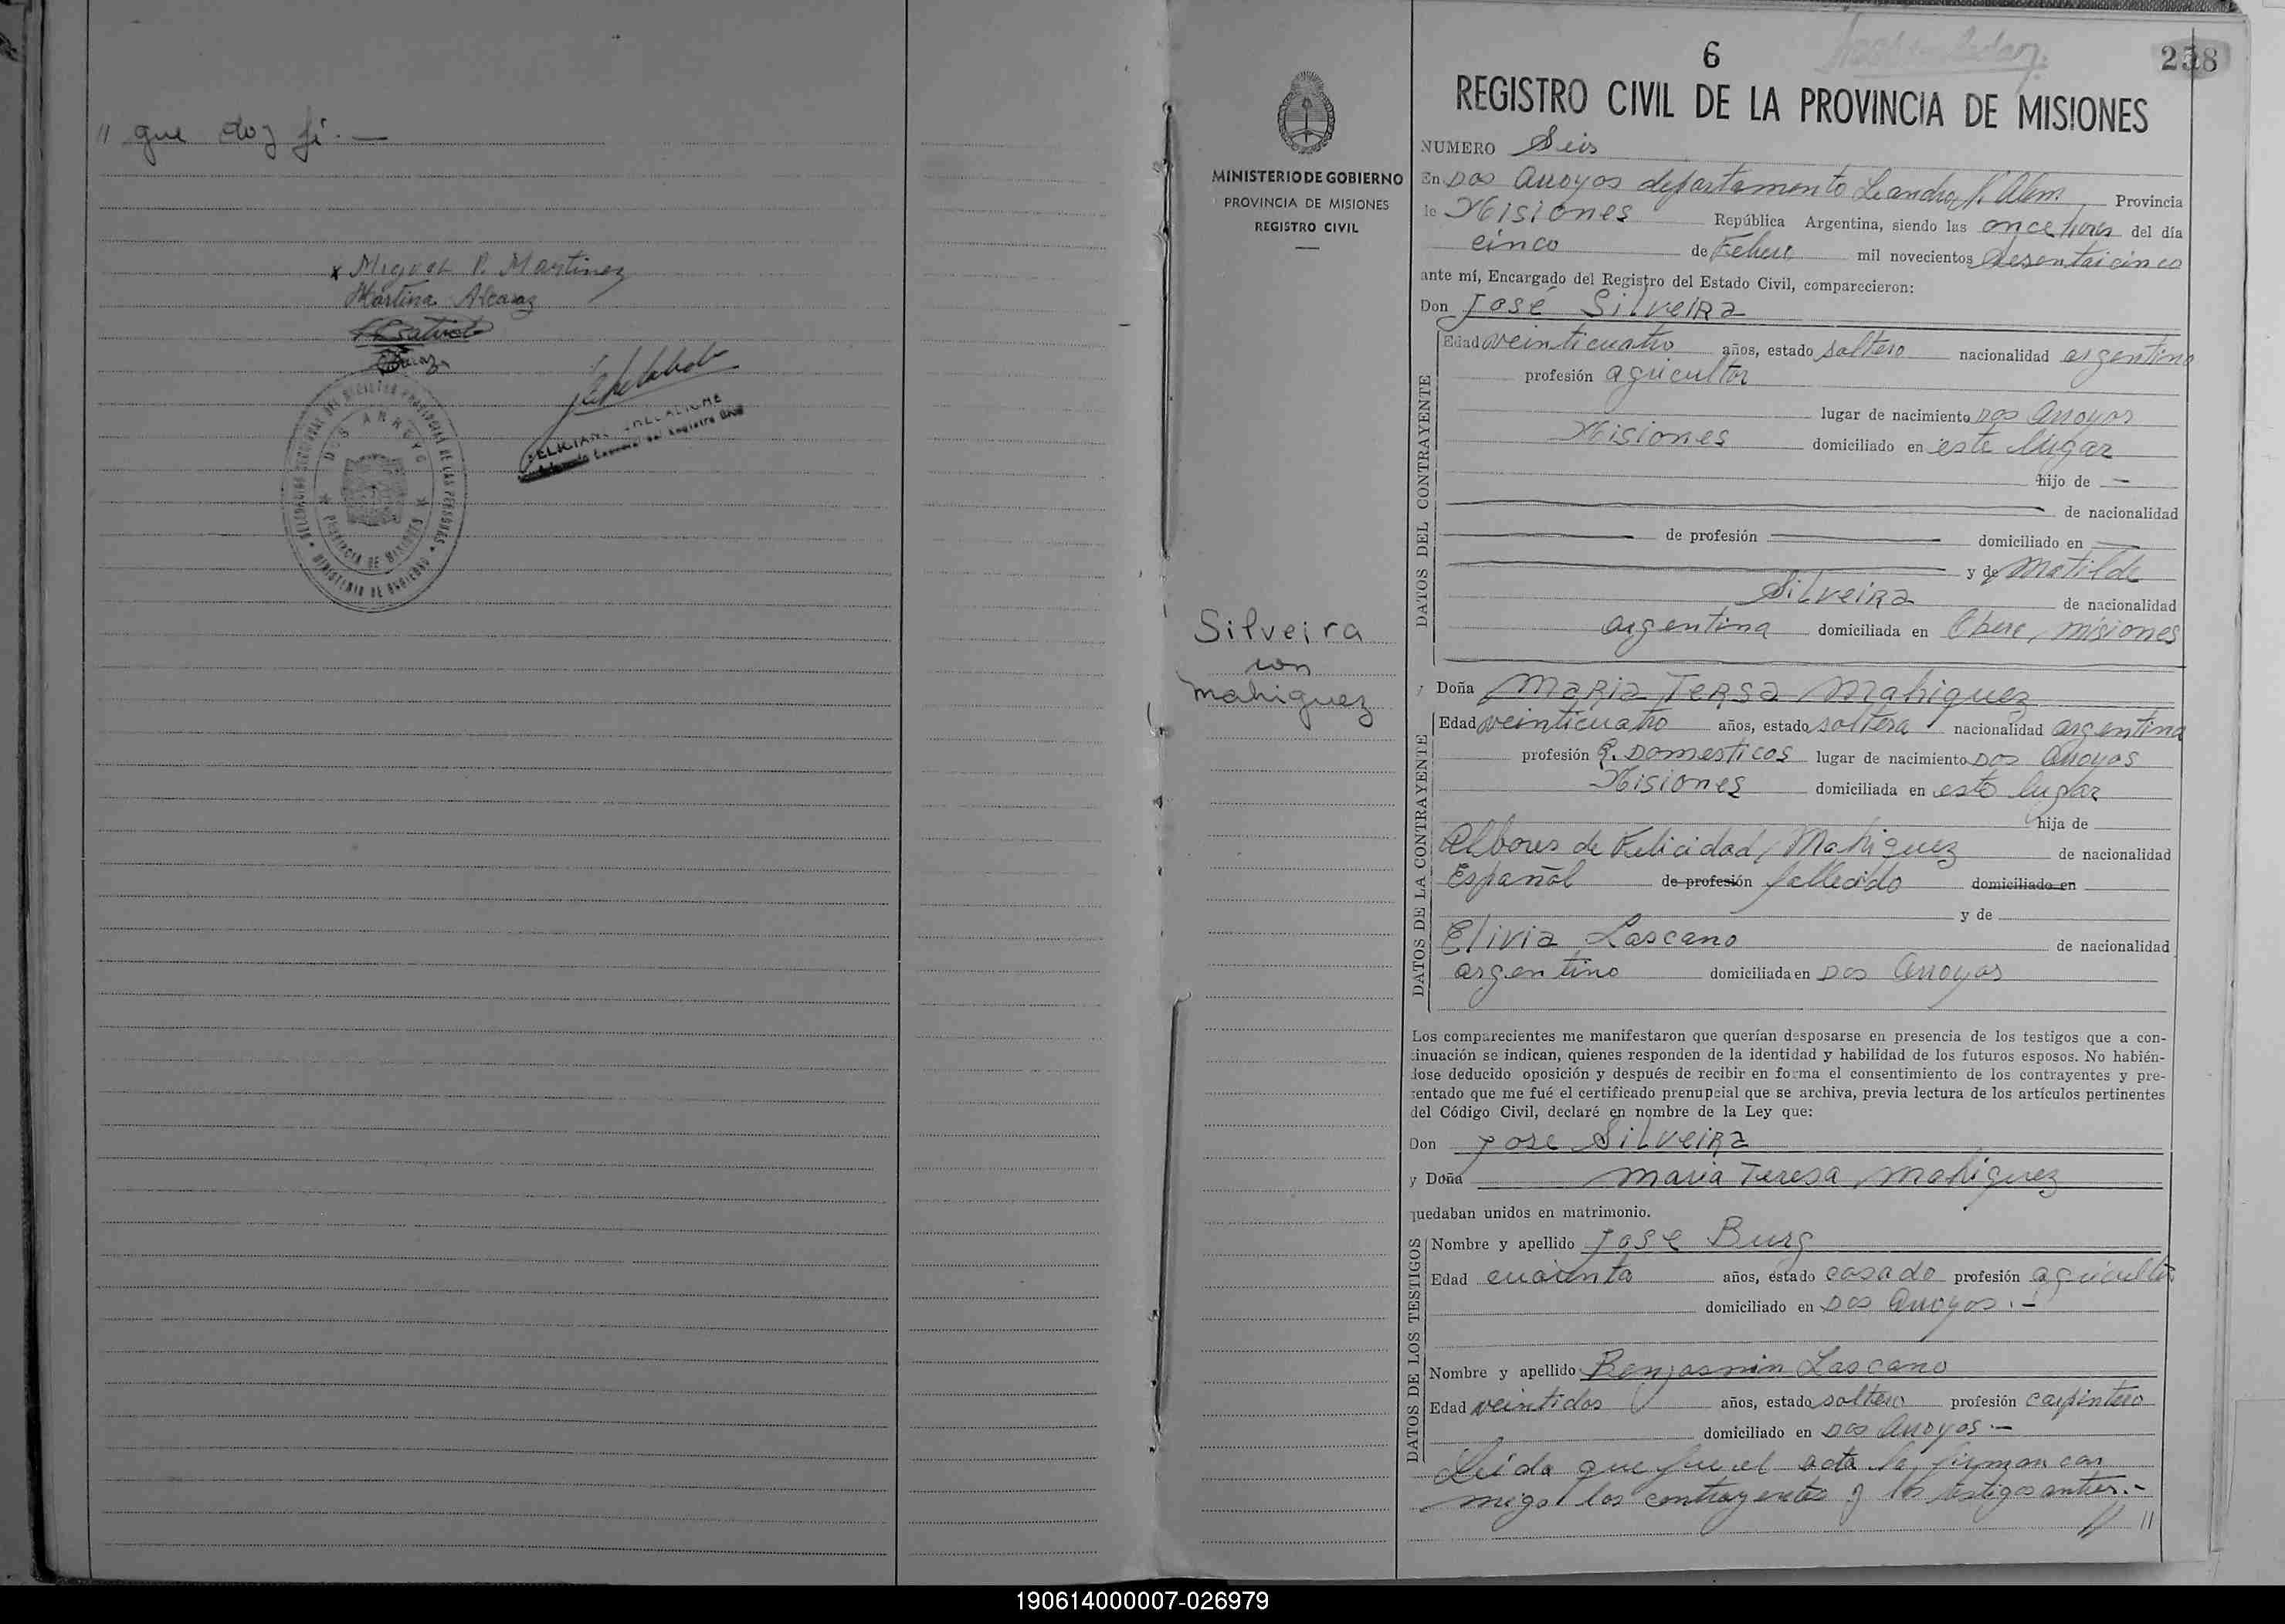 " que doy fé.—
x Miguel P. Martinez
Martina Alcaraz
DOS ARROYO
PROVINCIA DE MISIONES
MINISTERIO DE GOBIERNO
6
238
REGISTRO CIVIL DE LA PROVINCIA DE MISIONES
MINISTERIO DE GOBIERNO
PROVINCIA DE MISIONES
REGISTRO CIVIL
NUMERO Seis
En Dos Arroyos departamento Leandro N. Alem. Provincia
de Misiones República Argentina, siendo las once horas del día
cinco de Febrero mil novecientos Sesentaicinco
ante mí, Encargado del Registro del Estado Civil, comparecieron:
Don José Silveira
DATOS DEL CONTRAYENTE
Edad veinticuatro años, estado soltero nacionalidad argentino
profesión agricultor
lugar de nacimiento Dos Arroyos
Misiones domiciliado en este lugar
hijo de —
de nacionalidad
de profesión domiciliado en
y de Matilde
Silveira de nacionalidad
argentina domiciliada en Obera, misiones
Silveira
con
Mahiguez
y Doña Maria Tersa Mahiguez
DATOS DE LA CONTRAYENTE
Edad veinticuatro años, estado soltera nacionalidad argentina
profesión Q. Domesticos lugar de nacimiento Dos Arroyos
Misiones domiciliada en este lugar
hija de
Albores de Felicidad Mahiguez de nacionalidad
Español de profesión fallecido domiciliado en
y de
Elivia Lascano de nacionalidad
argentino domiciliada en Dos Arroyos
Los comparecientes me manifestaron que querían desposarse en presencia de los testigos que a con-
tinuación se indican, quienes responden de la identidad y habilidad de los futuros esposos. No habién-
dose deducido oposición y después de recibir en forma el consentimiento de los contrayentes y pre-
sentado que me fué el certificado prenupcial que se archiva, previa lectura de los artículos pertinentes
del Código Civil, declaré en nombre de la Ley que:
Don Jose Silveira
y Doña Maria Teresa Mahiguez
quedaban unidos en matrimonio.
DATOS DE LOS TESTIGOS
Nombre y apellido Jose Burg
Edad cuarenta años, estado casado profesión agricultor
domiciliado en Dos Arroyos.-
Nombre y apellido Benjasmin Lascano
Edad veintidos años, estado soltero profesión carpintero
domiciliado en Dos Arroyos —
Leida que fue el acta la firman con
migo los contrayentes y los testigos antes.-
"
190614000007-026979